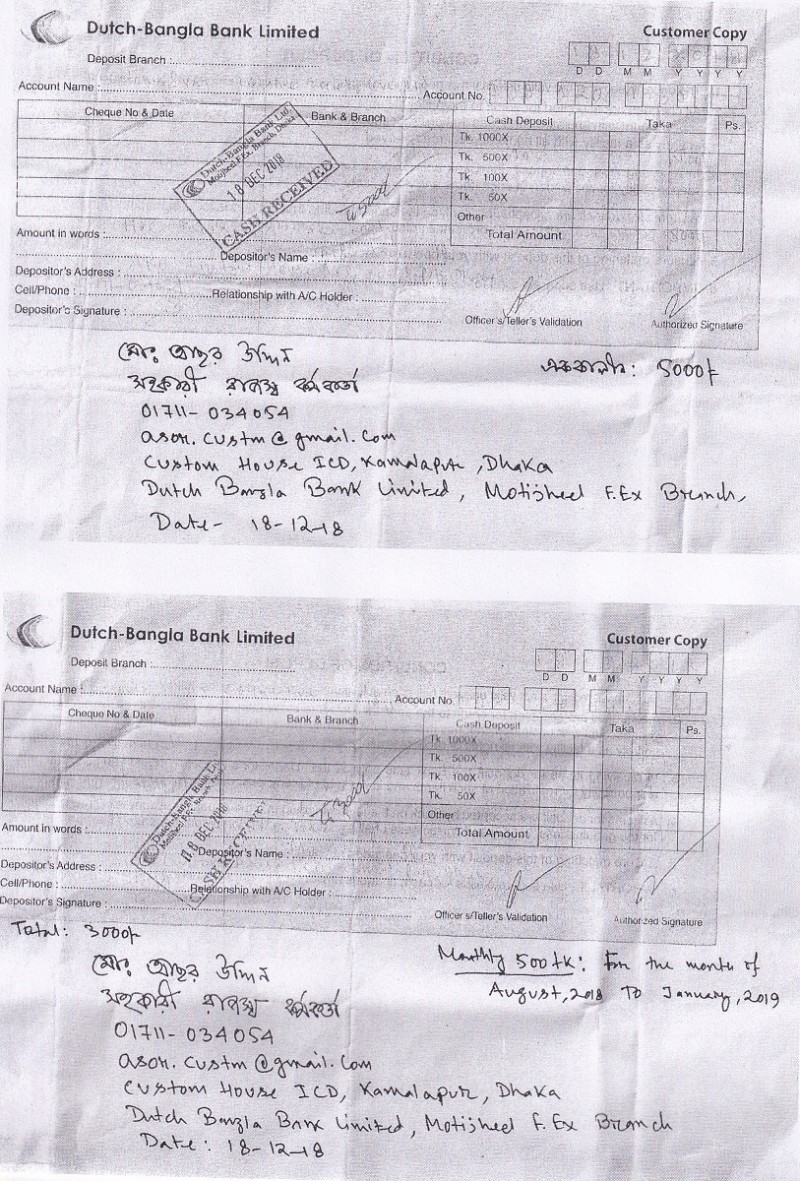 Dutch-Bangla Bank Limited
Customer Copy
Deposit Branch :
D D M M Y Y Y Y
Account Name :
Account No.
Cheque No & Date
Bank & Branch
Cash Deposit
Taka
Ps.
Tk. 1000X
Tk. 500X
Tk. 100X
Tk. 50X
Other
Total Amount
Dutch-Bangla Bank Ltd.
Motijheel F.Ex. Branch, Dhaka
18 DEC 2018
CASH RECEIVED
Tk 5000/
Amount in words :
Depositor's Name :
Depositor's Address :
Cell/Phone :
Relationship with A/C Holder :
Depositor's Signature :
Officer's/Teller's Validation
Authorized Signature
মোঃ আছর উদ্দিন
এককালীন: 5000/-
সহকারী রাজস্ব কর্মকর্তা
01711-034054
asou.custm@gmail.com
Custom House ICD, Kamalapur, Dhaka
Dutch Bangla Bank Limited, Motijheel F.Ex Branch,
Date- 18-12-18
Dutch-Bangla Bank Limited
Customer Copy
Deposit Branch :
D D M M Y Y Y Y
Account Name :
Account No.
Cheque No & Date
Bank & Branch
Cash Deposit
Taka
Ps.
Tk. 1000X
Tk. 500X
Tk. 100X
Tk. 50X
Other
Total Amount
Dutch-Bangla Bank Lt
Motijheel F.Ex. Branch
18 DEC 2018
CASH RECEIVE
Tk 3000/
Amount in words :
Depositor's Name :
Depositor's Address :
Cell/Phone :
Relationship with A/C Holder :
Depositor's Signature :
Officer s/Teller's Validation
Authorized Signature
Total: 3000/-
Monthly 500 tk: For the month of
August, 2018 To January, 2019
মোঃ আছর উদ্দিন
সহকারী রাজস্ব কর্মকর্তা
01711-034054
asou.custm@gmail.com
Custom House ICD, Kamalapur, Dhaka
Dutch Bangla Bank Limited, Motijheel F.Ex Branch
Date: 18-12-18